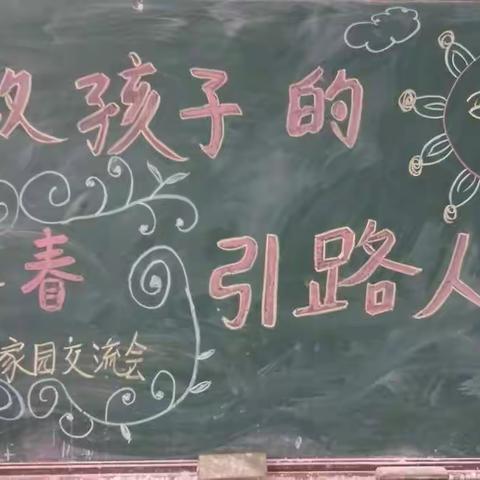 孩子的
引路人
春
家园交流会